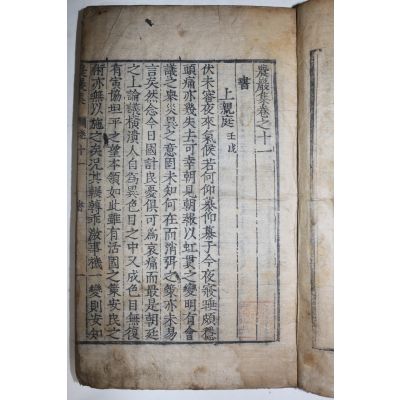 疑嚴集卷之十一
書
上親庭 壬戌
伏未審夜來氣候若何仰慕仰慕子今夜寢睡頗穩
頭痛亦幾失去可幸朝見朝報以虹貫之變明有會
議之擧災異之意固未知何在而消弭之策亦未易
言矣然念今日國計民憂俱可為哀痛而最是朝廷
之上論議橫潰人自為異色目之中又成色目無復
有寅協坦平之望本領如此雖有活國之策安民之
術亦無以施之矣况其輾轉乖激事機一變則安知
卷十一
書
一